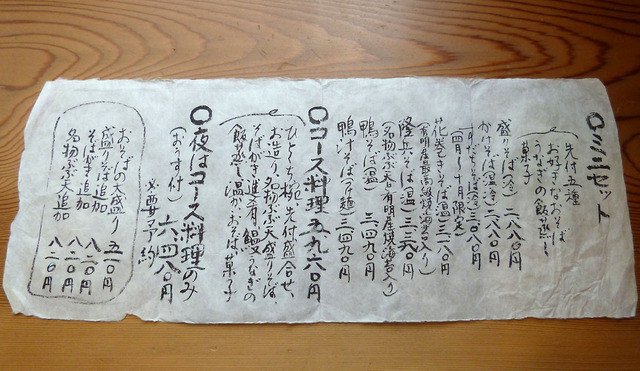 〇ミニセット
先付五種
お好きなおそば
うなぎの飯蒸し
菓子
盛りそば(冷)二八八〇円
かけそば(温)二八八〇円
すだちそば(冷)三〇八〇円
(四月〜十月限定)
花巻そば(温)三一八〇円
(有明産最高級焼海苔入り)
隆兵そば(温)三三八〇円
(名物ぶぶ天、有明産焼海苔入り)
鴨そば(温)三四九〇円
鴨汁そば(つけ麺)三四九〇円
〇コース料理 五九六〇円
ひとくち椀、先付盛合せ、
お造り、名物ぶぶ天、盛りそば、
そばがき進肴、鰻うなぎの
飯蒸し、温かいおそば、菓子
〇夜はコース料理のみ
(おうす付) 六四八〇円
必要予約
おそばの大盛り 五一〇円
盛りそば追加 八二〇円
そばがき追加 八二〇円
名物ぶぶ天追加 八二〇円